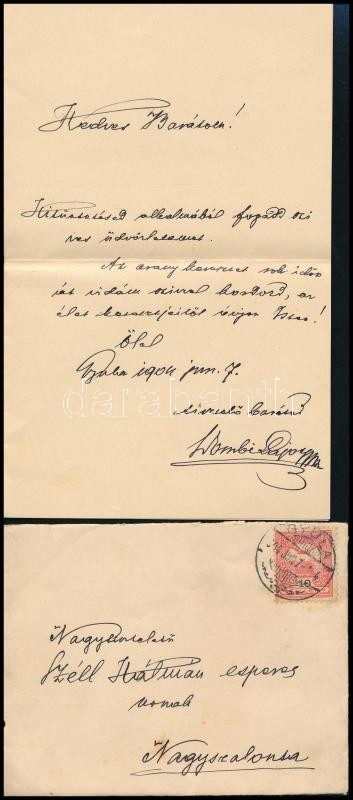 Kedves Barátom!
Kitüntetésed alkalmából fogadd szi
ves üdvözletemet.
Az arany keresztet sok időn
át vidám szivvel hordozd, az
élet keresztjeitől óvjon Isten!
Ölel
Gyula 1904 jun. 7.
barátod
Dombi Lajos
darabanth
GYULA
10
Nagytiszteletü
Széll Kálmán esperes
urnak
Nagyszalonta